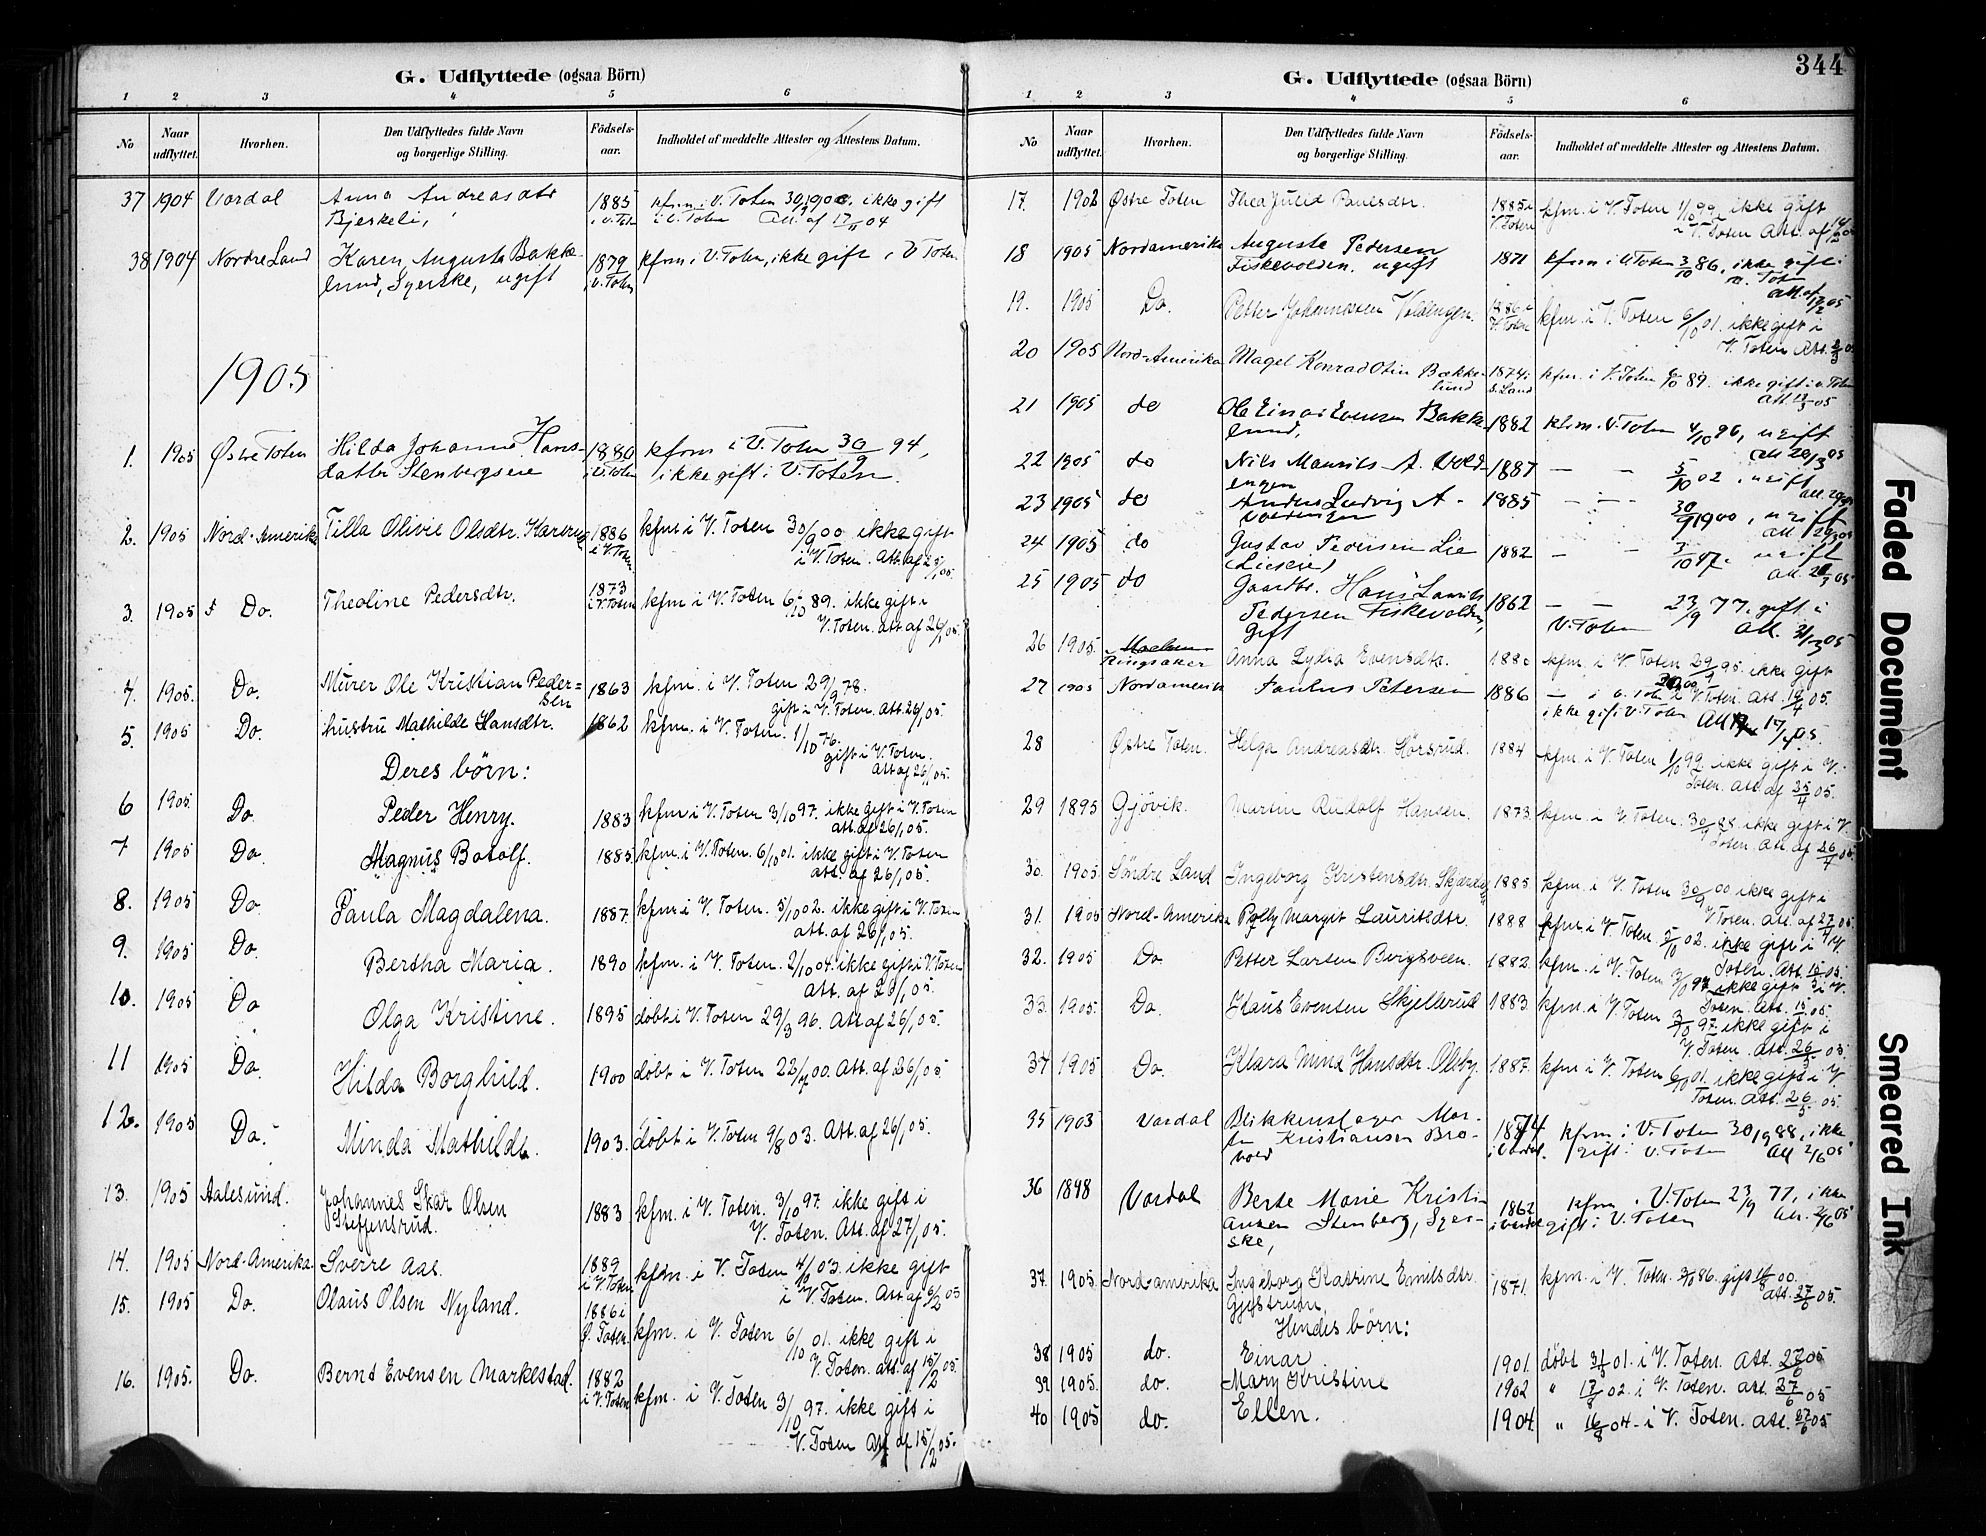 G. Udflyttede (ogsaa Börn)
1 2 3 4 5 6
No Naar udflyttet. Hvorhen. Den Udflyttedes fulde Navn og borgerlige Stilling. Födsels-aar. Indholdet af meddelte Attester og Attestens Datum.
37 1904 Vardal Anna Andreasdtr 1885 kfrm i V. Toten 30/9 1900, ikke gift
Bjerkeli, i V. Toten i V. Toten Att. af 17/11 04
38 1904 Nordre Land Karen Augusta Bakke- 1879 kfrm i V. Toten, ikke gift i V Toten
lund, Syerske, ugift i V. Toten
1905
1. 1905 Østre Toten Hilda Johanne Hans- 1880 kfrm i V. Toten 30/9 94,
datter Stenbergseie i V. Toten ikke gift i V. Toten.
2. 1905 Nord-Amerika Tilla Olivie Olsdtr. 1886 kfm i V. Toten 30/9 00 ikke gift
i V. Toten i V. Toten. Att. af 25/1 05.
3. 1905 Do. Theoline Pedersdtr. 1873 kfm i V. Toten 6/10 89. ikke gift i
i V. Toten V. Toten. att af 26/1 05.
4. 1905. Do. Murer Ole Kristian Peder= 1863 kfm. i V. Toten 29/9 78.
sen gift i V. Toten. Att. 26/1 05.
5. 1905 Do. hustru Mathilde Hansdtr. 1862 kfm. i V. Toten. 1/10 76.
gift i V. Toten.
Att af 26/1 05.
Deres börn:
6 1905 Do. Peder Henry. 1883 kfm i V. Toten 3/10 97. ikke gift i V. Toten
att. af 26/1 05.
7 1905 Do. Magnus Botolf. 1885 kfm. i V. Toten. 6/10 01. ikke gift i V. Toten
att. af 26/1 05.
8. 1905 Do. Paula Magdalena. 1887. kfm i V. Toten. 5/10 02. ikke gift i V. Toten
att. af 26/1 05.
9. 1905 Do. Bertha Maria. 1890 kfm. i V. Toten. 2/10 04. ikke gift i V. Toten
Att. af 26/1 05.
10. 1905 Do Olga Kristine. 1895 döbt i V. Toten 29/3 96. Att af 26/1 05.
11 1905 Do. Hilda Borghild. 1900 döbt i V. Toten 22/4 00. Att. af 26/1 05
12. 1905 Do. Minda Mathilde. 1903. döbt i V. Toten 9/8 03. Att. af 26/1 05.
13. 1905 Aalesund. Johannes Skar Olsen 1883 kfm. i V. Toten. 3/10 97. ikke gift i
Steffensrud. V. Toten. Att. af 27/1 05.
14. 1905 Nord-Amerika. Sverre Aas. 1889 kfm. i V. Toten 4/10 03. ikke gift
i V. Toten i V. Toten. Att af 6/2 05
15. 1905 Do. Olaus Olsen Nyland. 1886 i kfm. i V. Toten 6/10 01. ikke gift i
Ø. Toten V. Toten. att. af 15/2 05.
16. 1905. Do. Bernt Evensen Markestad. 1882 kfm. i V. Toten 3/10 97. ikke gift i
i V. Toten V. Toten Att af 15/2 05.
344
G. Udflyttede (ogsaa Börn)
1 2 3 4 5 6
No Naar udflyttet. Hvorhen. Den Udflyttedes fulde Navn og borgerlige Stilling. Födsels-aar. Indholdet af meddelte Attester og Attestens Datum.
17. 1902 Østre Toten Thea Julie Paulsdtr. 1885 i kfm. i V. Toten 1/10 99. ikke gift
V. Toten i V. Toten Att. af 14/2 05
18 1905 Nordamerika Auguste Pedersen 1871 kfrm i V. Toten 3/10 86, ikke gift i
Fiskevolden, ugift V. Toten
att. af 17/2 05
19. 1905 Do. Petter Johannessen Voldengen. 1886 i kfm. i V. Toten 6/10 01. ikke gift i
V. Toten V. Toten Att. 3/3 05
20 1905 Nord-Amerika Magel Konrad Otin Bække- 1874 i kfm. i V. Toten 6/10 89. ikke gift i V. Toten
lund S. Land att. 13/3 05
21 1905 do Ole Einar Evensen Bakke- 1882 kfrm. i V. Toten 4/10 96, ugift
lund, att 20/3 05
22 1905 do Nils Maurits A. Vold- 1887 — — 5/10 02, ugift
engen att 29/3 05
23 1905 do Anders Ludvig A. 1885 — — 30/9 1900, ugift
Voldengen att 29/3 05
24 1905 do Gustav Pedersen Lie 1882 — — 3/10 97. ugift
att. 29/3 05
25 1905 do Gaardbr. Hans Laurits 1862 — — 23/9 77. gift i
Pedersen Fiskevolden, V. Toten att. 31/3 05
gift
26 1905. Ringsaker Anna Lydia Evensdtr. 1880 kfm. i V. Toten 29/9 95. ikke gift
i V. Toten. Att. 19/4 05.
27 1905 Nordamerika Paulus Petersen 1886 — i V. Toten
ikke gift i V. Toten Att 17/4 05.
28 Østre Toten. Helga Andreasdtr. Hörsrud. 1884 kfm. i V. Toten 1/10 99. ikke gift i V.
Toten. Att. af 25/4 05.
29 1895 Gjövik. Martin Rudolf Hansen. 1873 kfm. i V. Toten. 30/9 88. ikke gift i V.
Toten. Att af 26/4 05.
30. 1905. Söndre Land Ingeborg Kristensdtr. 1885 kfm. i V. Toten 30/9 00 ikke gift i
V. Toten. Att. af 27/4 05.
31. 1905 Nord-Amerika Polly Margit Lauritsdtr. 1888 kfm i V. Toten. 5/10 02. ikke gift i V
Toten. Att. 15/5 05.
32. 1905 Do Petter Larsen Bergsveen. 1882. kfm. i V. Toten 3/10 97 ikke gift i V.
Toten. Att. 15/5 05.
33. 1905. Do. Hans Evensen Skjellerud 1883. kfm. i V. Toten 3/10 97. ikke gift i
V. Toten. Att. 26/5 05.
34 1905. Do. Klara Mina Hansdtr. Olsby. 1887. kfm i V. Toten 6/10 01. ikke gift i V.
Toten. Att. 26/5 05.
35 1903 Vardal Blikkenslager Mar- 1874 kfrm i V. Toten 30/9 88, ikke
tin Kristiansen Bro- i Vardal. gift i V. Toten Att 2/6 05
vold
36 1898 Vardal Berte Marie Kristi- 1862 kfrm i V. Toten 23/9 77, ikke
ansen Stenberg, Syer- i Vardal gift i V. Toten Att. 2/6 05
ske,
37. 1905. Nordamerika Ingeborg Katrine Emilsdtr. 1871. kfm. i V. Toten. 3/10 86. gift
att. 27/6 05.
Hendes börn:
38 1905 do. Einar 1901. döbt i V. Toten. Att. 27/6 05
39 1905. do. Mary Kristine 1902 " 17/8 02. i V. Toten. att. 27/6 05
40 1905 do. Ellen. 1904. " 16/8 04. i V. Toten. att. 27/6 05
Faded Document
Smeared Ink